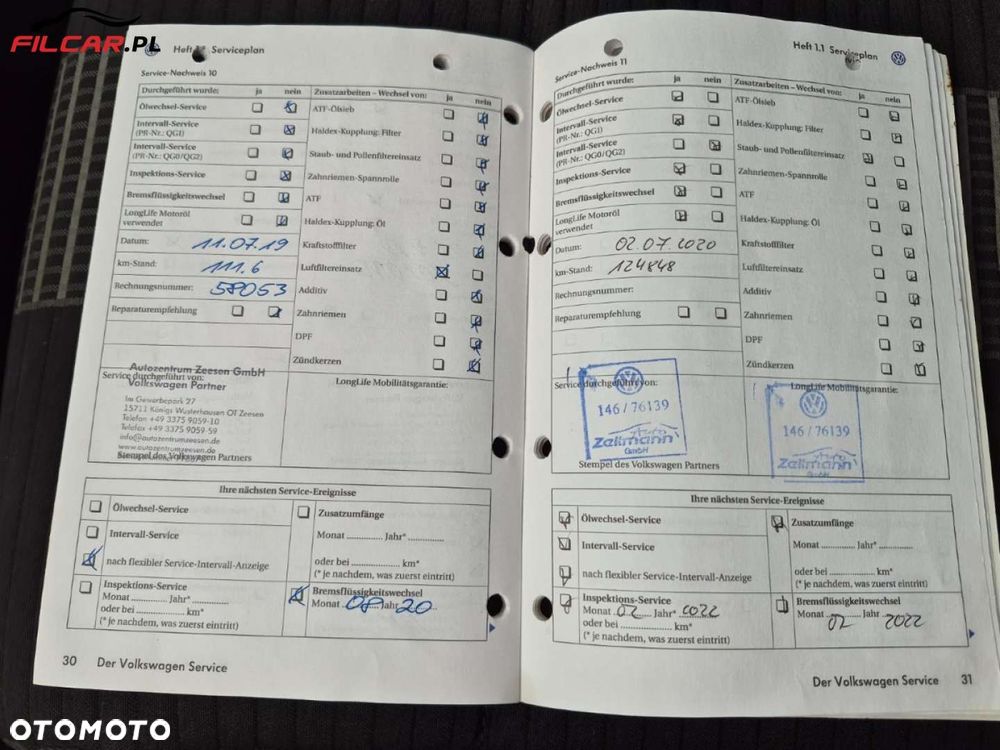 FILCAR.PL
Heft 1.1 Serviceplan
Service-Nachweis 10
Durchgeführt wurde: ja nein
Ölwechsel-Service
Intervall-Service
(PR-Nr.: QGI)
Intervall-Service
(PR-Nr.: QG0/QG2)
Inspektions-Service
Bremsflüssigkeitswechsel
LongLife Motoröl
verwendet
Datum: 11.07.19
km-Stand: 111.6
Rechnungsnummer: 58053
Reparaturempfehlung
Zusatzarbeiten – Wechsel von: ja nein
ATF-Ölsieb
Haldex-Kupplung: Filter
Staub- und Pollenfiltereinsatz
Zahnriemen-Spannrolle
ATF
Haldex-Kupplung: Öl
Kraftstofffilter
Luftfiltereinsatz
Additiv
Zahnriemen
DPF
Zündkerzen
Autozentrum Zeesen GmbH
Service durchgeführt von:
Volkswagen Partner
Im Gewerbepark 27
15711 Königs Wusterhausen OT Zeesen
Telefon +49 3375 9059-10
Telefax +49 3375 9059-59
info@autozentrumzeesen.de
www.autozentrumzeesen.de
Stempel des Volkswagen Partners
LongLife Mobilitätsgarantie:
Ihre nächsten Service-Ereignisse
Ölwechsel-Service
Intervall-Service
nach flexibler Service-Intervall-Anzeige
Inspektions-Service
Monat ............ Jahr* ............
oder bei ............ km*
(* je nachdem, was zuerst eintritt)
Zusatzumfänge
Monat ............ Jahr* ............
oder bei ............ km*
(* je nachdem, was zuerst eintritt)
Bremsflüssigkeitswechsel
Monat 08 Jahr 20
30 Der Volkswagen Service
Heft 1.1 Serviceplan
Service-Nachweis 11
Durchgeführt wurde: ja nein
Ölwechsel-Service
Intervall-Service
(PR-Nr.: QGI)
Intervall-Service
(PR-Nr.: QG0/QG2)
Inspektions-Service
Bremsflüssigkeitswechsel
LongLife Motoröl
verwendet
Datum: 02.07.2020
km-Stand: 124848
Rechnungsnummer:
Reparaturempfehlung
Zusatzarbeiten – Wechsel von: ja nein
ATF-Ölsieb
Haldex-Kupplung: Filter
Staub- und Pollenfiltereinsatz
Zahnriemen-Spannrolle
ATF
Haldex-Kupplung: Öl
Kraftstofffilter
Luftfiltereinsatz
Additiv
Zahnriemen
DPF
Zündkerzen
Service durchgeführt von:
146/76139
Auto
Zellmann
GmbH
Stempel des Volkswagen Partners
LongLife Mobilitätsgarantie:
146/76139
Auto
Zellmann
GmbH
Ihre nächsten Service-Ereignisse
Ölwechsel-Service
Intervall-Service
nach flexibler Service-Intervall-Anzeige
Inspektions-Service
Monat 02 Jahr* 2022
oder bei ............ km*
(* je nachdem, was zuerst eintritt)
Zusatzumfänge
Monat ............ Jahr* ............
oder bei ............ km*
(* je nachdem, was zuerst eintritt)
Bremsflüssigkeitswechsel
Monat 02 Jahr 2022
Der Volkswagen Service 31
OTOMOTO